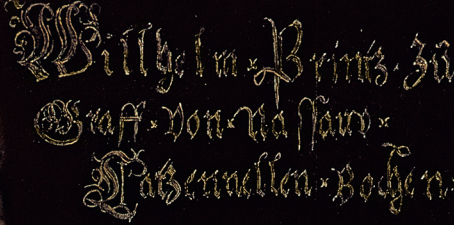 Wilhelm × Printz · Zů
Graff × von × Nassaw ×
Catzennellen × Bochen